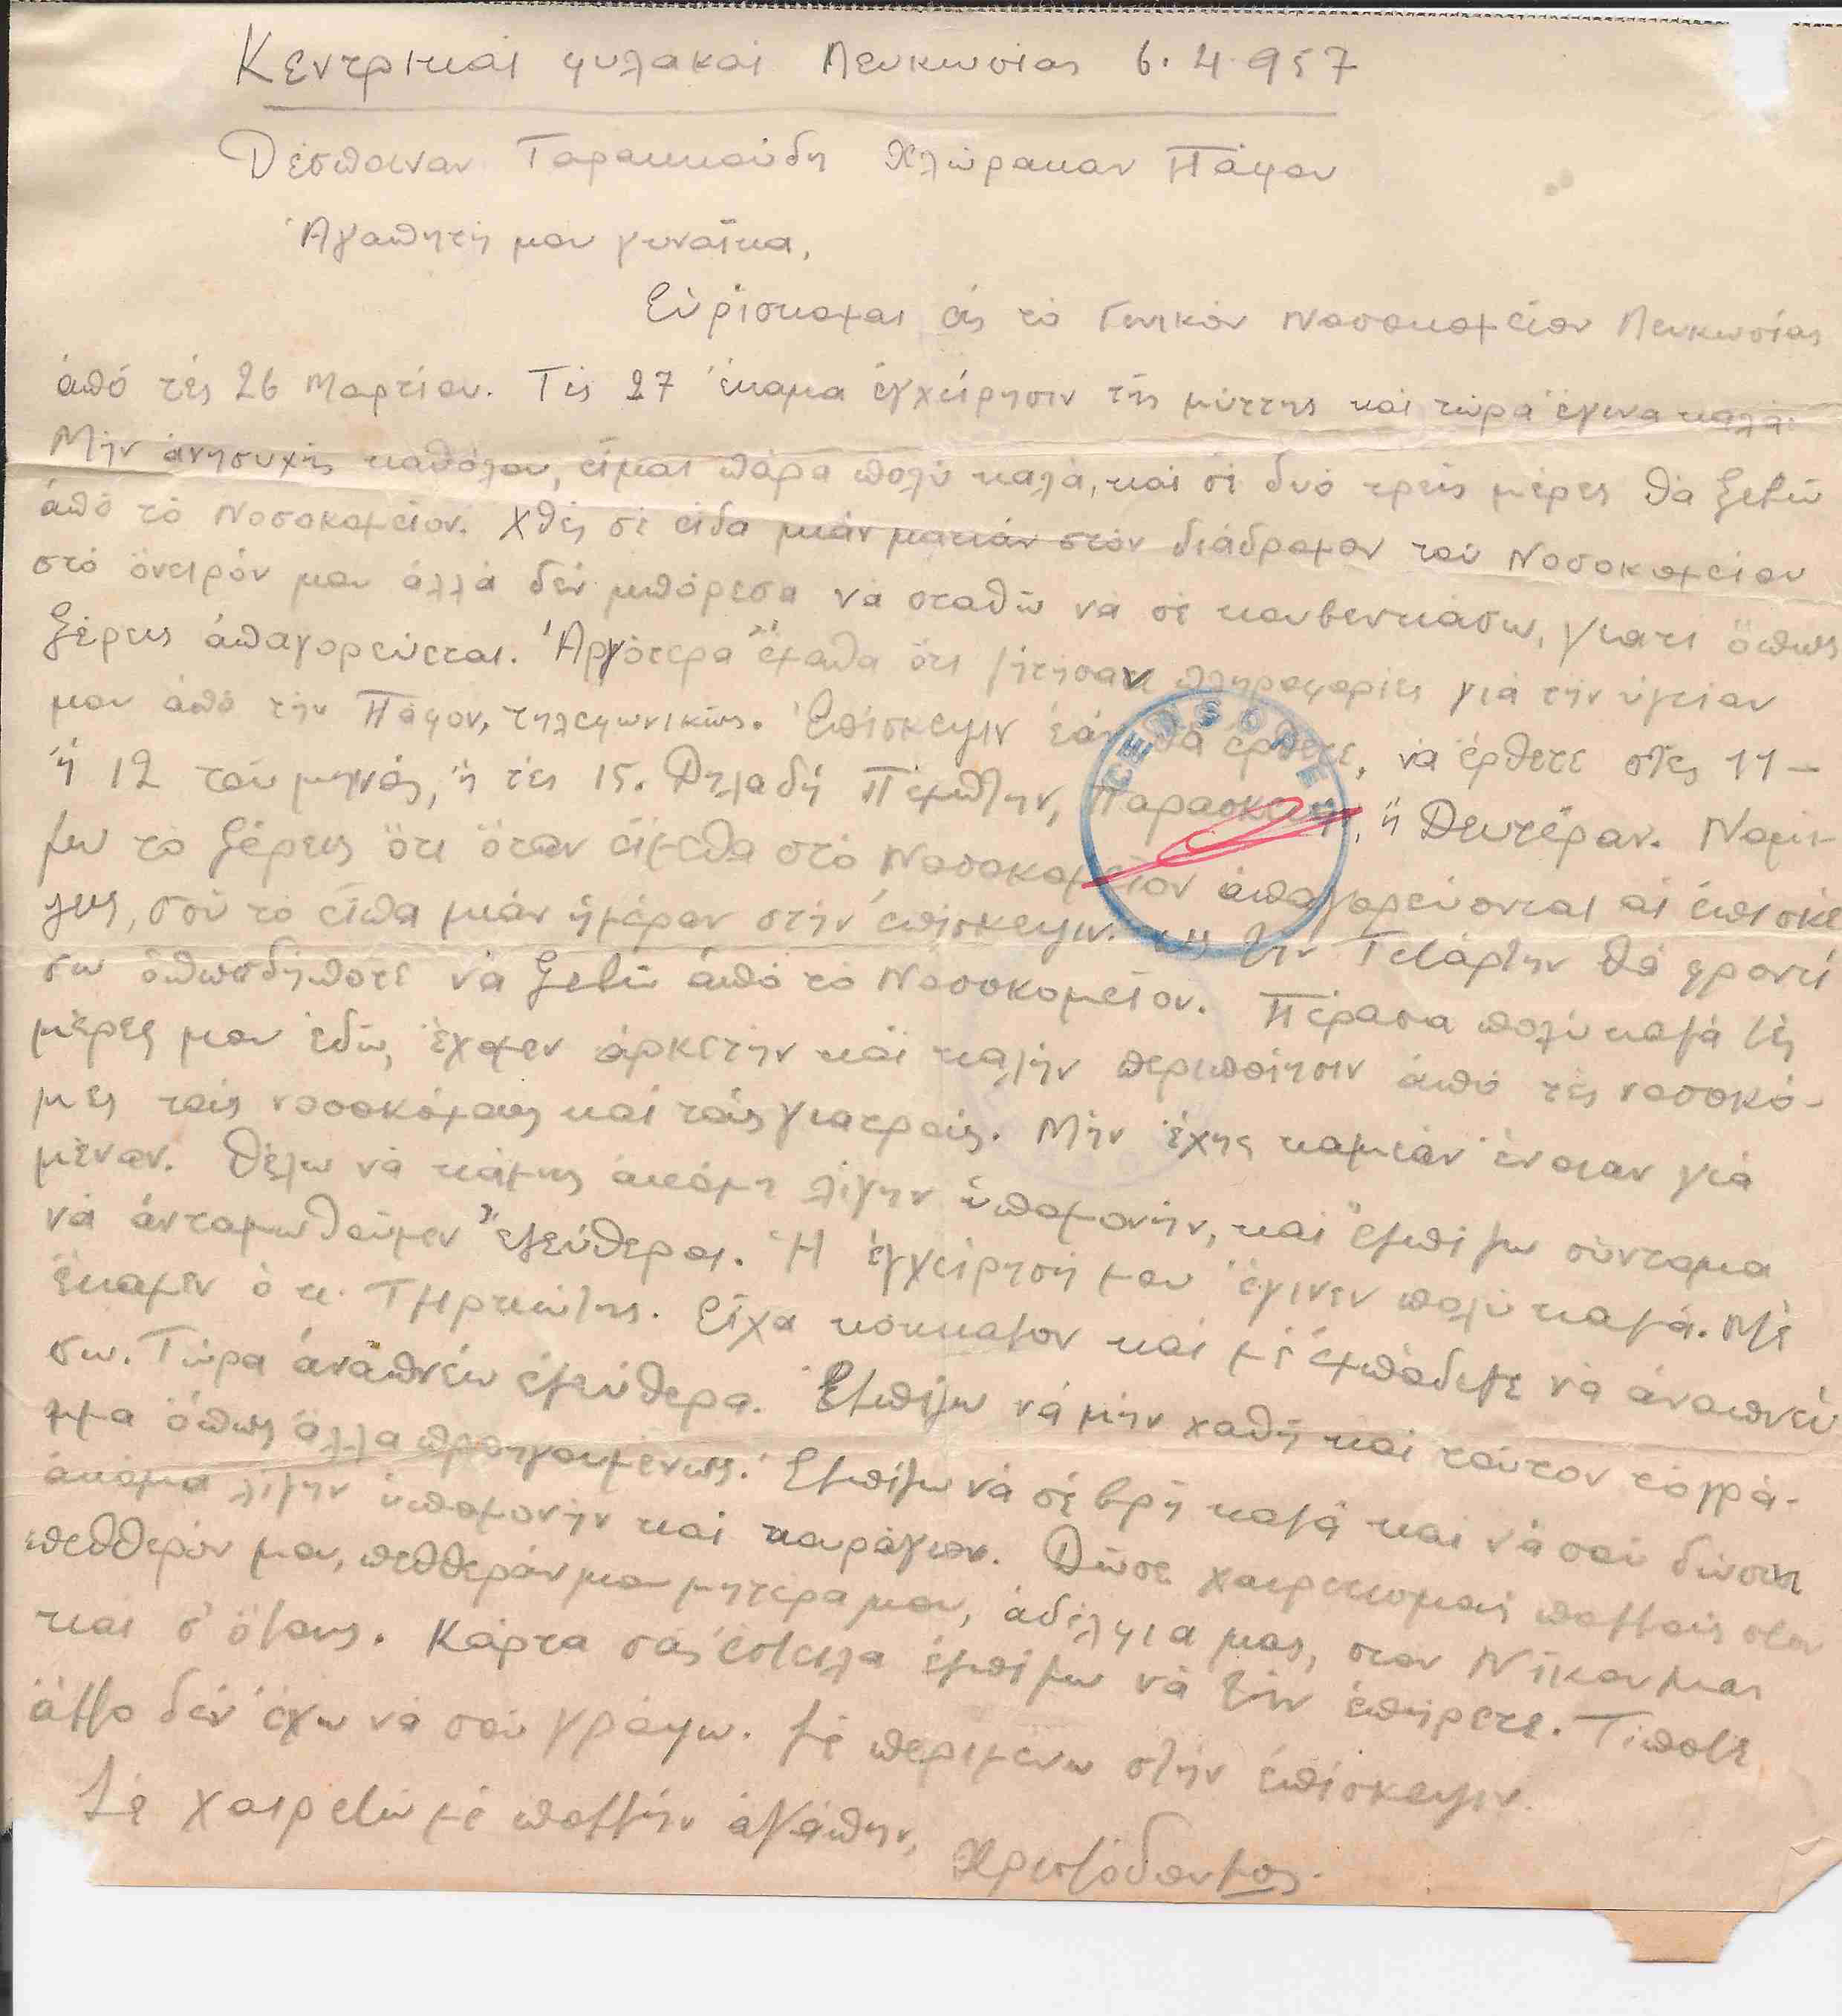 Κεντρικαί φυλακαί Λευκωσίας 6.4.957
Δέσποιναν Ταρακκούδη Χλώρακαν Πάφου
Ἀγαπητή μου γυναῖκα,
Εὑρίσκομαι εἰς τό Γενικόν Νοσοκομεῖον Λευκωσίας
ἀπό τές 26 Μαρτίου. Τίς 27 ἔκαμα ἐγχείρησιν τῆς μύττης καί τώρα ἔγινα καλά.
Μήν ἀνησυχῆς καθόλου, εἶμαι πάρα πολύ καλά, καί σέ δυό τρεῖς μέρες θά ξεβῶ
ἀπό τό Νοσοκομεῖον. Χθές σέ εἶδα μιάν ματιάν στόν διάδρομον τοῦ Νοσοκομείου
στό ὄνειρόν μου ἀλλά δέν μπόρεσα νά σταθῶ νά σέ κουβεντιάσω, γιατί ὅπως
ξέρεις ἀπαγορεύεται. Ἀργότερα ἔμαθα ὅτι ζήτησαν πληροφορίες γιά τήν ὑγείαν
μου ἀπό τήν Πάφον, τηλεφωνικῶς. Ἐπίσκεψιν ἐάν θά ἔρθετε, νά ἔρθετε στές 11 –
ἤ 12 τοῦ μηνός, ἤ τές 15. Δηλαδή Πέμπτην, Παρασκευήν, ἤ Δευτέραν. Νομί-
ζω τό ξέρεις ὅτι ὅταν εἴμεθα στό Νοσοκομεῖον ἀπαγορεύονται αἱ ἐπισκέ
ψεις, σοῦ τό εἶπα μιάν ἡμέραν στήν ἐπίσκεψιν. ὡς τήν Τετάρτην θά φροντί
σω ὁπωσδήποτε νά ξεβῶ ἀπό τό Νοσοκομεῖον. Πέρασα πολύ καλά τές
μέρες μου ἐδῶ, ἔχομεν ἀρκετήν καί καλήν περιποίησιν ἀπό τές νοσοκό-
μες τούς νοσοκόμους καί τούς γιατρούς. Μήν ἔχης καμμιάν ἔνοιαν γιά
μέναν. Θέλω νά κάμης ἀκόμη λίγην ὑπομονήν, καί ἐλπίζω σύντομα
νά ἀνταμωθοῦμεν ἐλεύθεροι. Ἡ ἐγχείρησή μου ἔγινεν πολύ καλά. Μέ
ἔκαμεν ὁ κ. Τμρκώτης. Εἶχα κόκκαλον καί μέ ἐμπόδιζε νά ἀναπνεύ
σω. Τώρα ἀναπνέω ἐλεύθερα. Ἐλπίζω νά μήν χαθῆ καί τοῦτον τό γρά-
μμα ὅπως ἄλλα προηγουμένως. Ἐλπίζω νά σέ βρῆ καλά καί νά σοῦ δώση
ἀκόμα λίγην ὑπομονήν καί κουράγιον. Δῶσε χαιρετισμούς πολλούς στον
πεθθερόν μου, πεθθεράν μου μητέρα μου, ἀδέλφια μας, στον Νίκον μας
καί σ' ὅλους. Κάρτα σᾶς ἔστειλα ἐλπίζω νά τήν ἐπήρετε. Τίποτε
ἄλλο δέν ἔχω νά σοῦ γράψω. Σέ περιμένω στήν ἐπίσκεψιν.
Σέ χαιρετῶ μέ πολλήν ἀγάπην,
Χριστόδουλος.
CENSOR